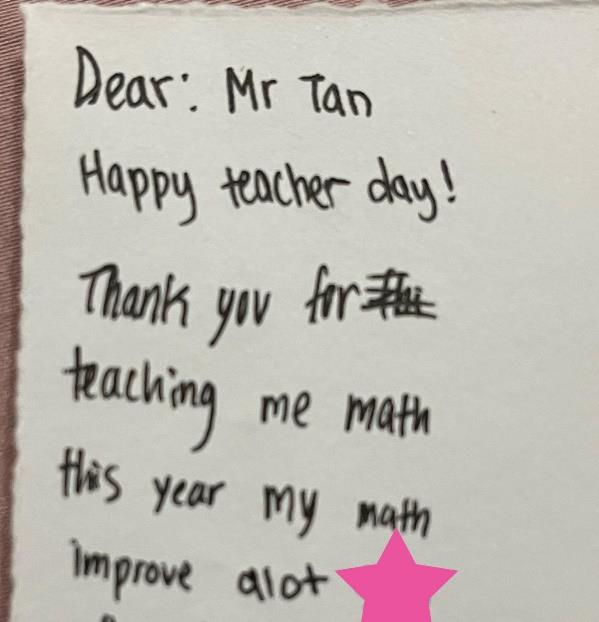 Dear: Mr Tan
Happy teacher day!
Thank you for
teaching me math
this year my math
improve alot